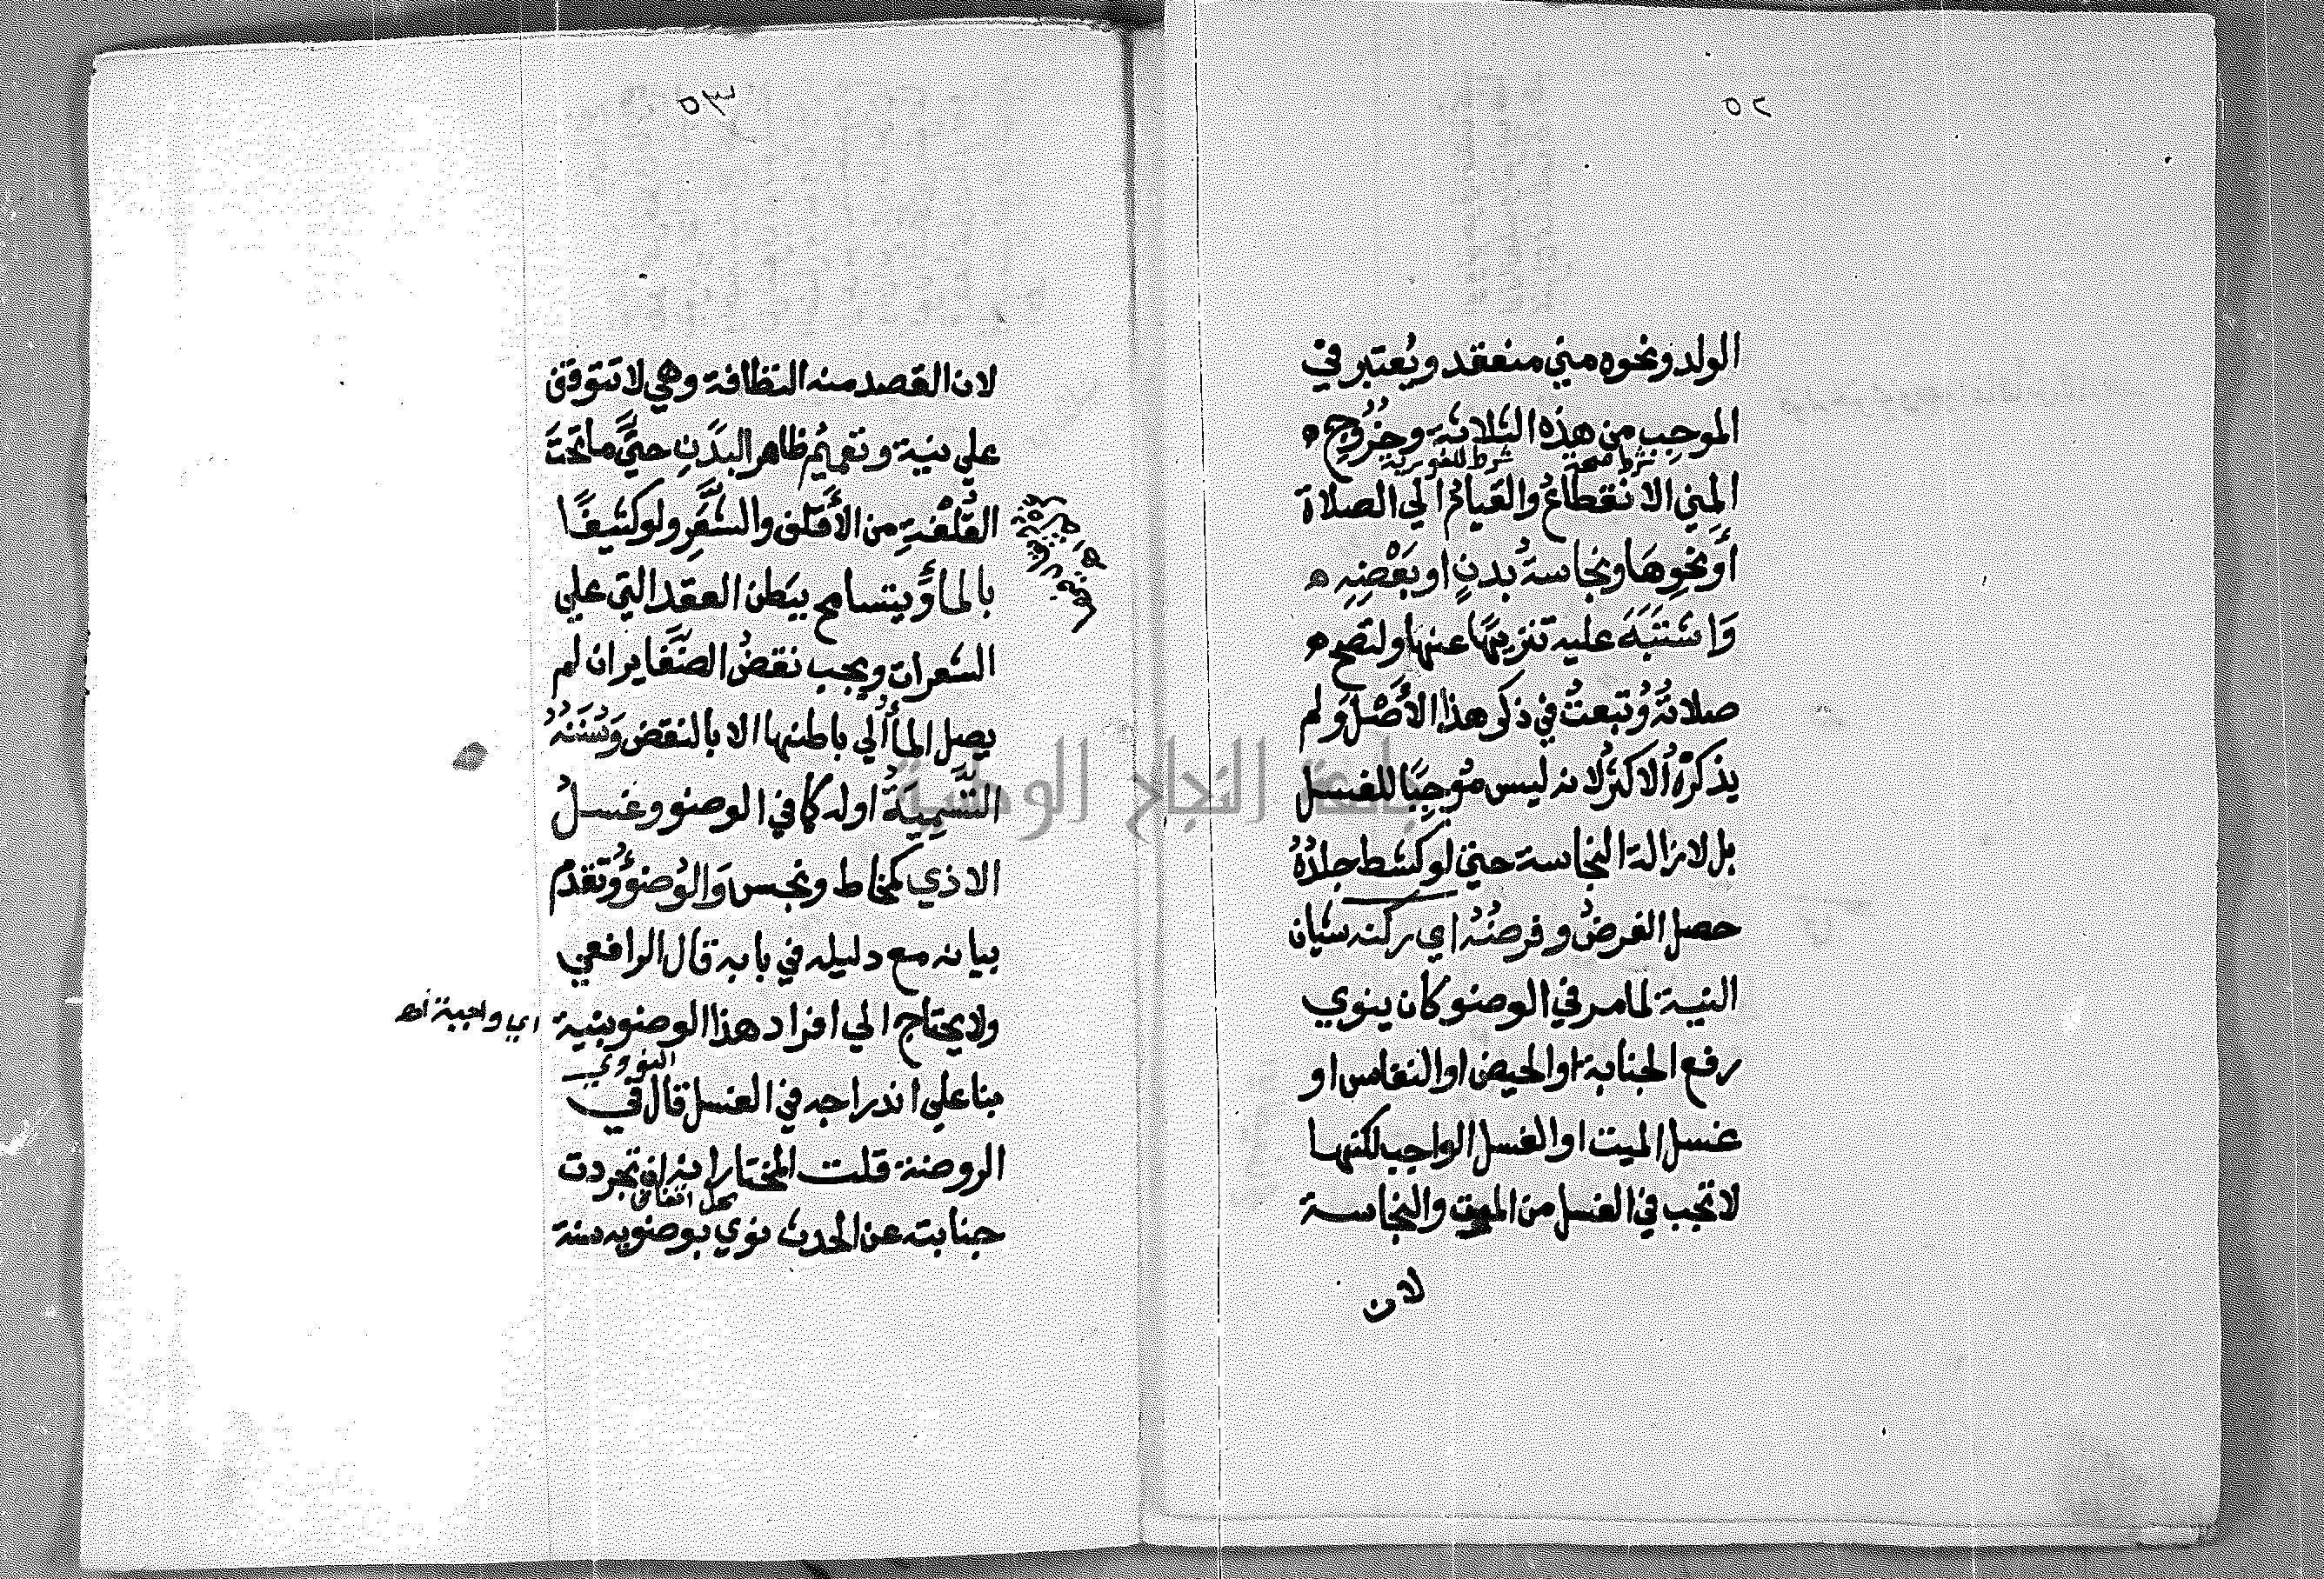 ٥٢
الولد ونحوه مني منعقد ويُعتبر في
الموجب من هذه الثلاثة وخُرُوج
شرط صحة شرط للفورية
المني الانقطاعُ والقيامُ الي الصلاة
أو نحوِها ونجاسةُ بدنٍ او بَعْضِهِ
وَاشتَبَهَ عليه تنزيهًا عنها ولتصح
صلاتهُ وتبعتُ في ذكر هذا الأَصْلَ ولم
يذكرْهُ الاكثرُ لانه ليس مُوجِبًا للغسل
بل لازالة النجاسة حتي لو كشط جلدُهُ
حصل الغرضُ وفرضُهُ اي ركنه شيان
النية لما مر في الوضو كان ينوي
رفع الجنابة او الحيض او النفاس او
غسل الميت او الغسل الواجب لكنها
لا تجب في الغسل من الموت والنجاسة
لان
٥٣
لان القصد منه النظافة وهي لا تتوقف
علي نية وتعميمُ ظاهرِ البدَنِ حتيَّ ما تحتَ
القُلْفةِ من الأَقلف والشَّعَرِ ولو كثيفًا
بالماءِ ويتسامح ببَطن العقد التي علي
الشعرات ويجب نقضُ الضَّفاير ان لم
يصل الماُ الي باطنها الا بالنقض وَسُنَنُهُ
التَّسْمِيةُ اوله كما في الوضو وغسلُ
الاذي كمخاط ونجس وَالوُضوُ وتقدم
بيانه مع دليله في بابه قال الرافعي
ولا يحتاج الي افراد هذا الوضو بنية اي واجبة اهـ
النووي
بنا علي اندراجه في الغسل قال في
الروضة قلت المختار انه ان تجردت
محل اتفاق
جنابته عن الحدث نوي بوضويه سنة